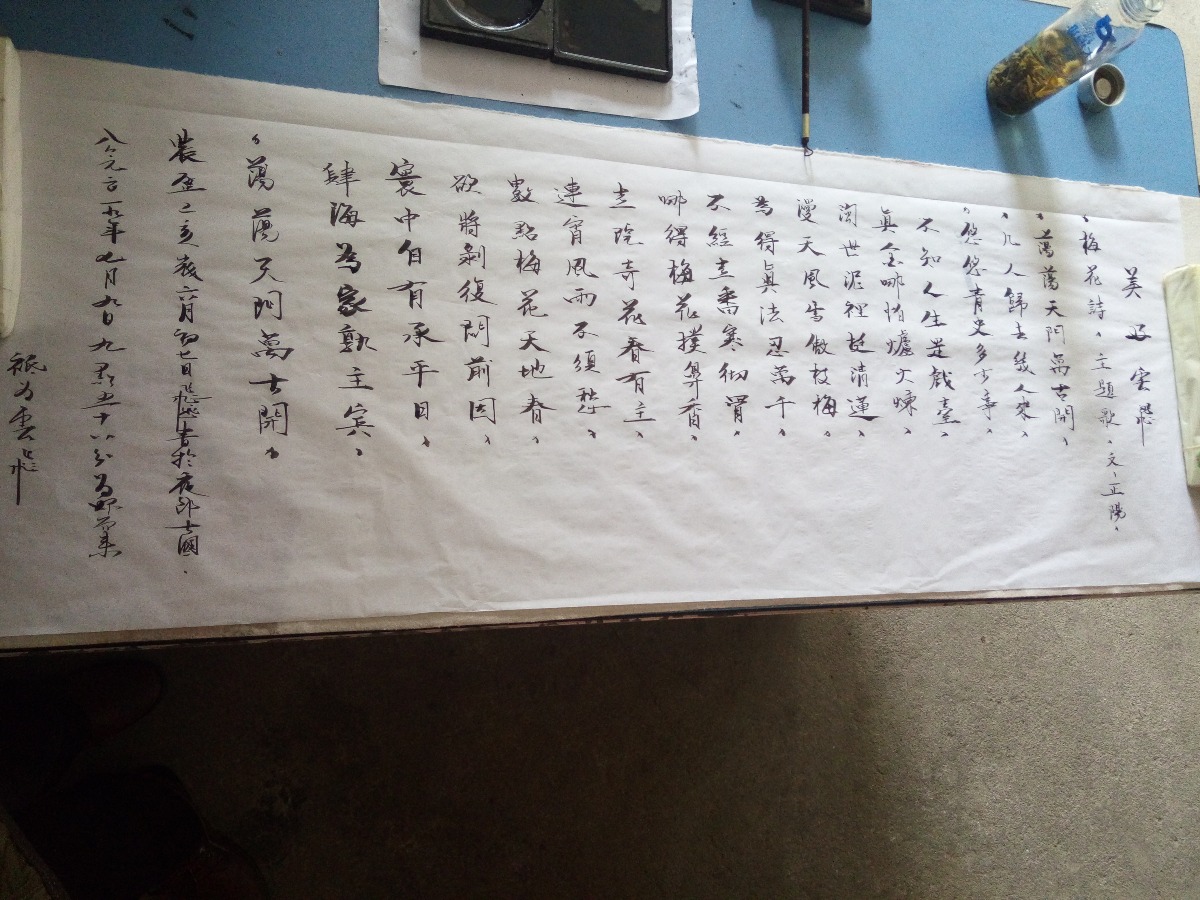 美 雲飛
、梅花詩、主題歌、文、正陽、
、蕩蕩天門萬古開、
、几人歸去幾人來、
、悠悠青史多少事、
不知人生是戲臺、
真金哪怕爐火煉、
濁世泥裡 清蓮、
漫天風雪傲枝梅、
為得真法忍萬千、
不經 寒彻骨、
哪得梅花撲鼻香、
院奇花春有主、
連宵風雨不須愁、
數點梅花天地春、
欲將剝復問前因、
寰中自有承平日、
肆海為家孰主賓、
、蕩蕩天門萬古開、
農歷己亥歲六月初七日飛 書於夜郎古國、
公元二 一九年七月九日九點 十八分
雲飛